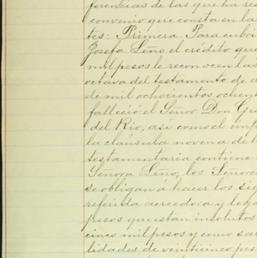 rencias de las que ha res
convenio que consta en la
tes: Primera. Para cubri
Josefa Leño el crédito que
mil pesos le reconocen las
octava del testamento de
de mil ochocientos ochen
falleció el Señor Don Gre
del Rio, asi como el imp
la cláusula novena de
testamentaria contiene
Señora Leño, los Señore
se obligan a hacer los sig
referida acreedora y lega
pesos que estan insolutos
cinco mil pesos y como sal
lidades de veinticinco pes